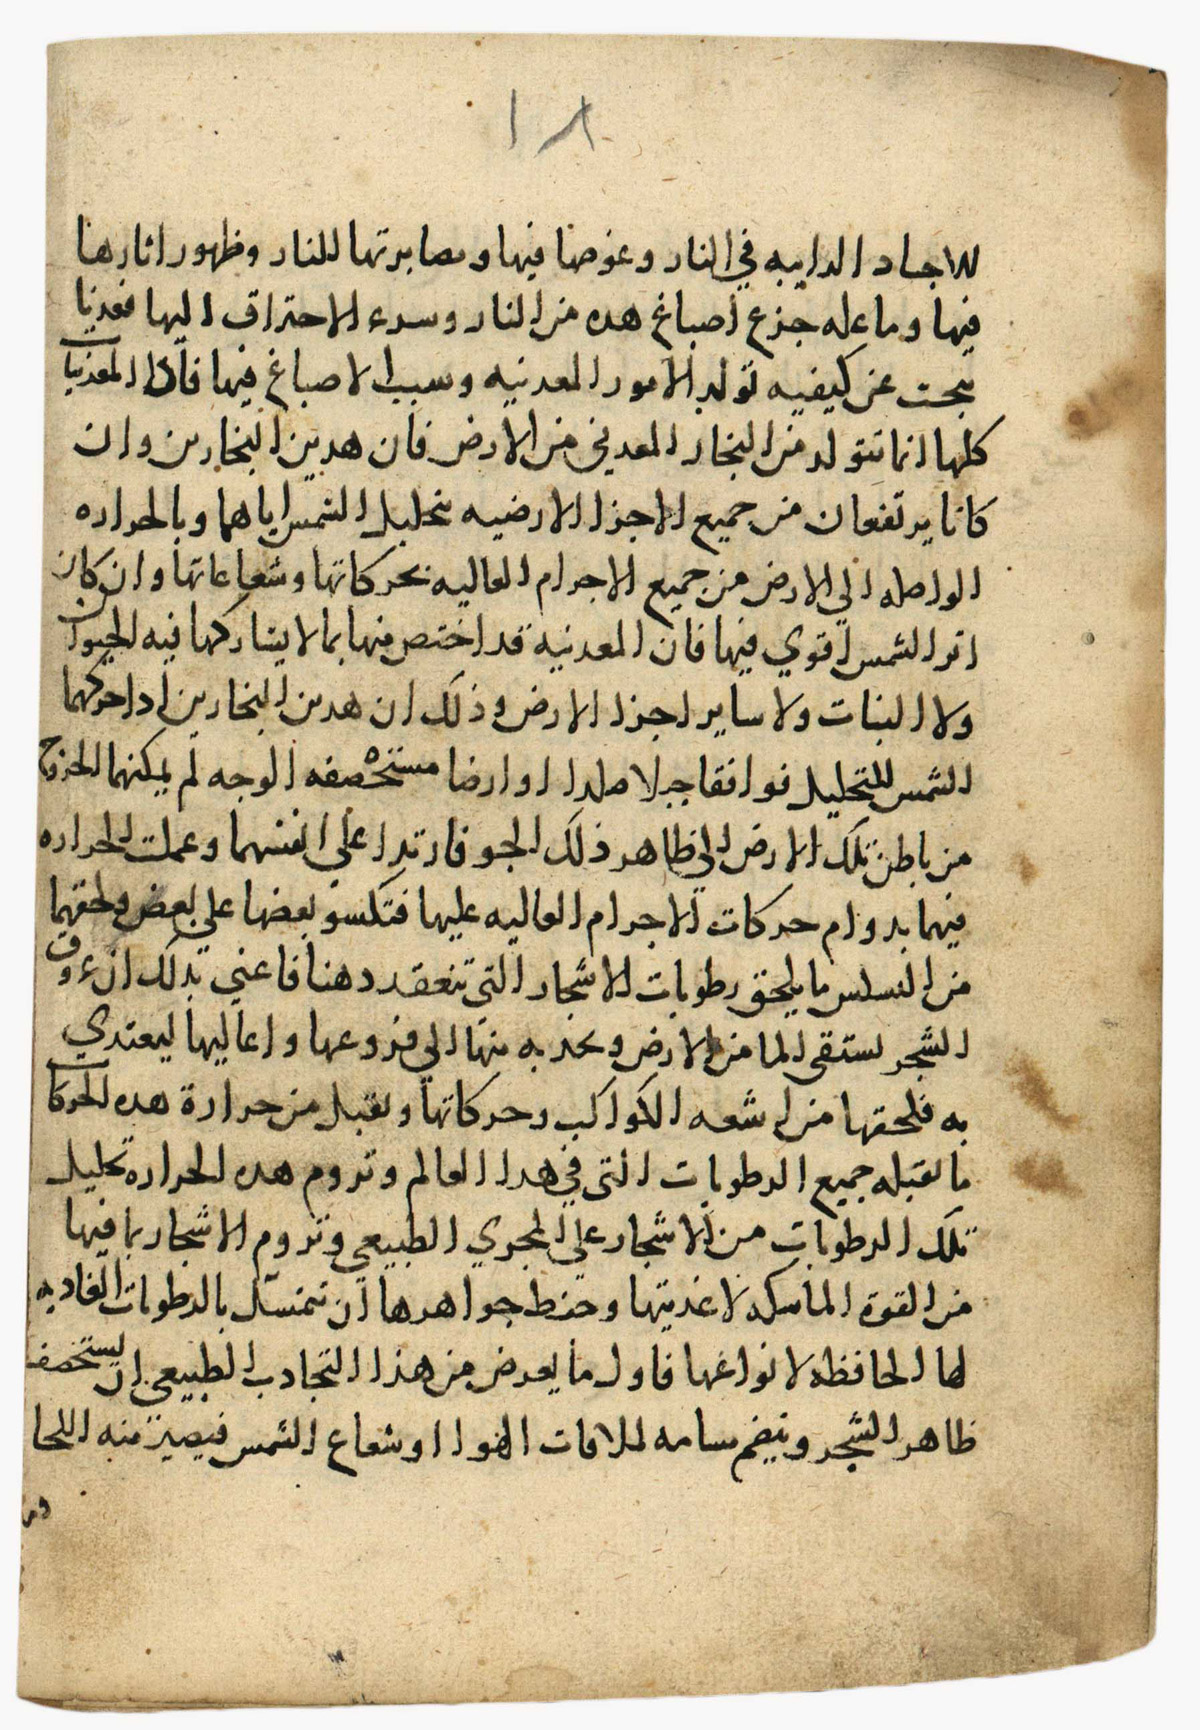 ١٨
للاجساد الدايبه في النار وغوصها فيها ومصابرتها للنار وظهور اثارها
فيها وما عله جزع اصباغ هده من النار وسرء الاحتراق اليها فعدنا
نبحت عن كيفيه تولد الامور المعدنيه وسبب الاصباغ فيها فاذا المعدنيات
كلها انما تتولد من البخار المعدني من الارض فان هدين البخارين وان
كانا يرتفعان من جميع الاجزا الارضيه بتحليل الشمس اياهما وبالحراره
الواصله الي الارض من جميع الاجرام العاليه بحركاتها وشعاعاتها وان كان
اثر الشمس اقوي فيها فان المعدنية قد اختص منها بما لا يشاركها فيه الحيوان
ولا النبات ولا ساير اجزا الارض وذلك ان هدين البخارين ادا حركهما
الشمس للتحليل فوافقا جبلا صلدا او ارضا مستحصفه الوجه لم يمكنهما الخروج
من باطن تلك الارض الي ظاهر ذلك الجو فارتدا علي انفسهما وعملت الحراره
فيهما بدوام حركات الاجرام العاليه عليها فتكسو بعضها علي بعض ولحقهما
من السلس ما يلحق رطوبات الاشجار التي تنعقد دهنا فاعني بدلك ان عروق
الشجر تستقي الما من الارض وتجذبه منها الي فروعها واعاليها ليعتدي
به فلحقها من اشعه الكواكب وحركاتها وتقبل من حرارة هده الحركات
ما تقبله جميع الرطوبات التي في هدا العالم وتروم هده الحراره تحليل
تلك الرطوبات من الاشجار علي المجري الطبيعي وتروم الاشجار بما فيها
من القوة الماسكه لاغذيتها وحفط جواهرها ان تتمسك بالرطوبات الغاديه
لها الحافظه لانواعها فاول ما يعرض من هذا التجادب الطبيعي ان يستخصف
ظاهر الشجر وينضم مسامه لملاقات الهوا او شعاع الشمس فيصير منه اللحا